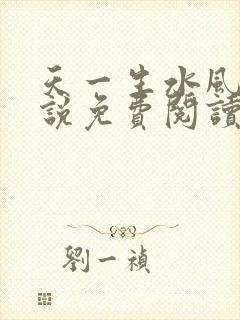 天一生水風
說免費閱讀
劉一禎